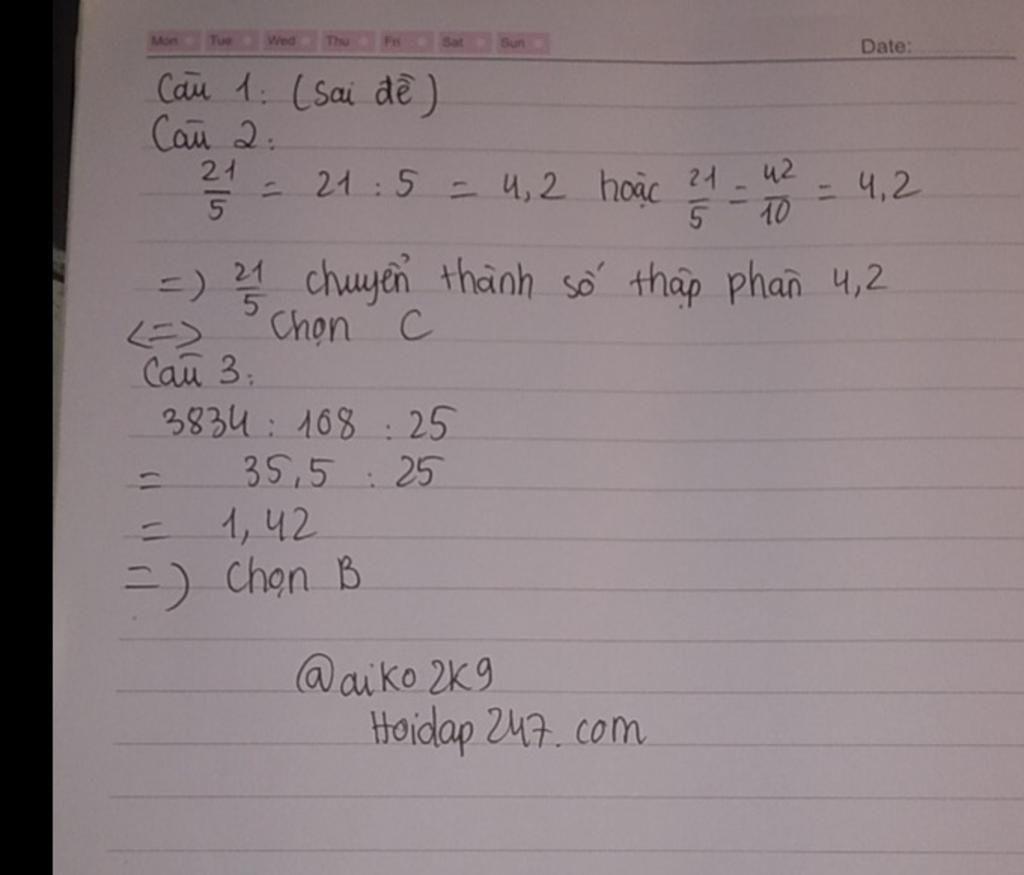 Mon Tue Wed Thu Fri Sat Sun Date:
Câu 1: (Sai đề)
Câu 2:
21/5 = 21 : 5 = 4,2 hoặc 21/5 = 42/10 = 4,2
=) 21/5 chuyển thành số thập phân 4,2
<=> Chọn C
Câu 3:
3834 : 108 : 25
= 35,5 : 25
= 1,42
=) Chọn B
@aiko2k9
Hoidap247.com